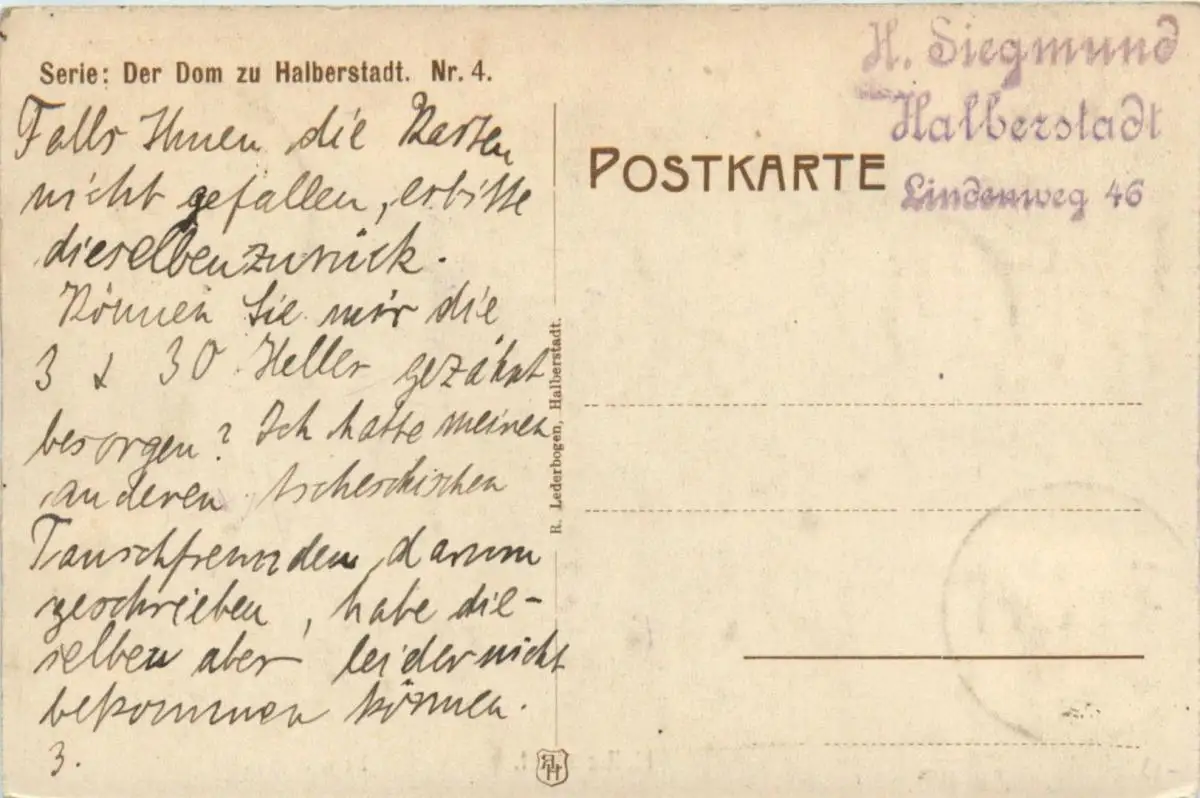 Serie: Der Dom zu Halberstadt. Nr. 4.
H. Siegmund
Halberstadt
Lindenweg 46
POSTKARTE
Falls Ihnen die Karten
nicht gefallen, erbitte
dieselben zurück.
Können Sie mir die
3 & 30 Heller gezähnt
besorgen? Ich hatte meinen
anderen tschechischen
Tauschfreunden darum
geschrieben, habe die-
selben aber leider nicht
bekommen können.
3.
R. Lederbogen, Halberstadt.